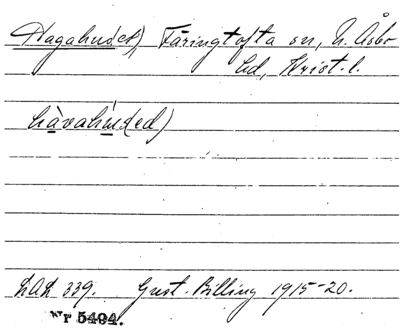 Hagahuset, Färingtofta sn, N. Åsbo
hd, Krist. l.
hàvahús(ed)
LAL 339. Gust. Billing 1915-20.
Nr 5494.